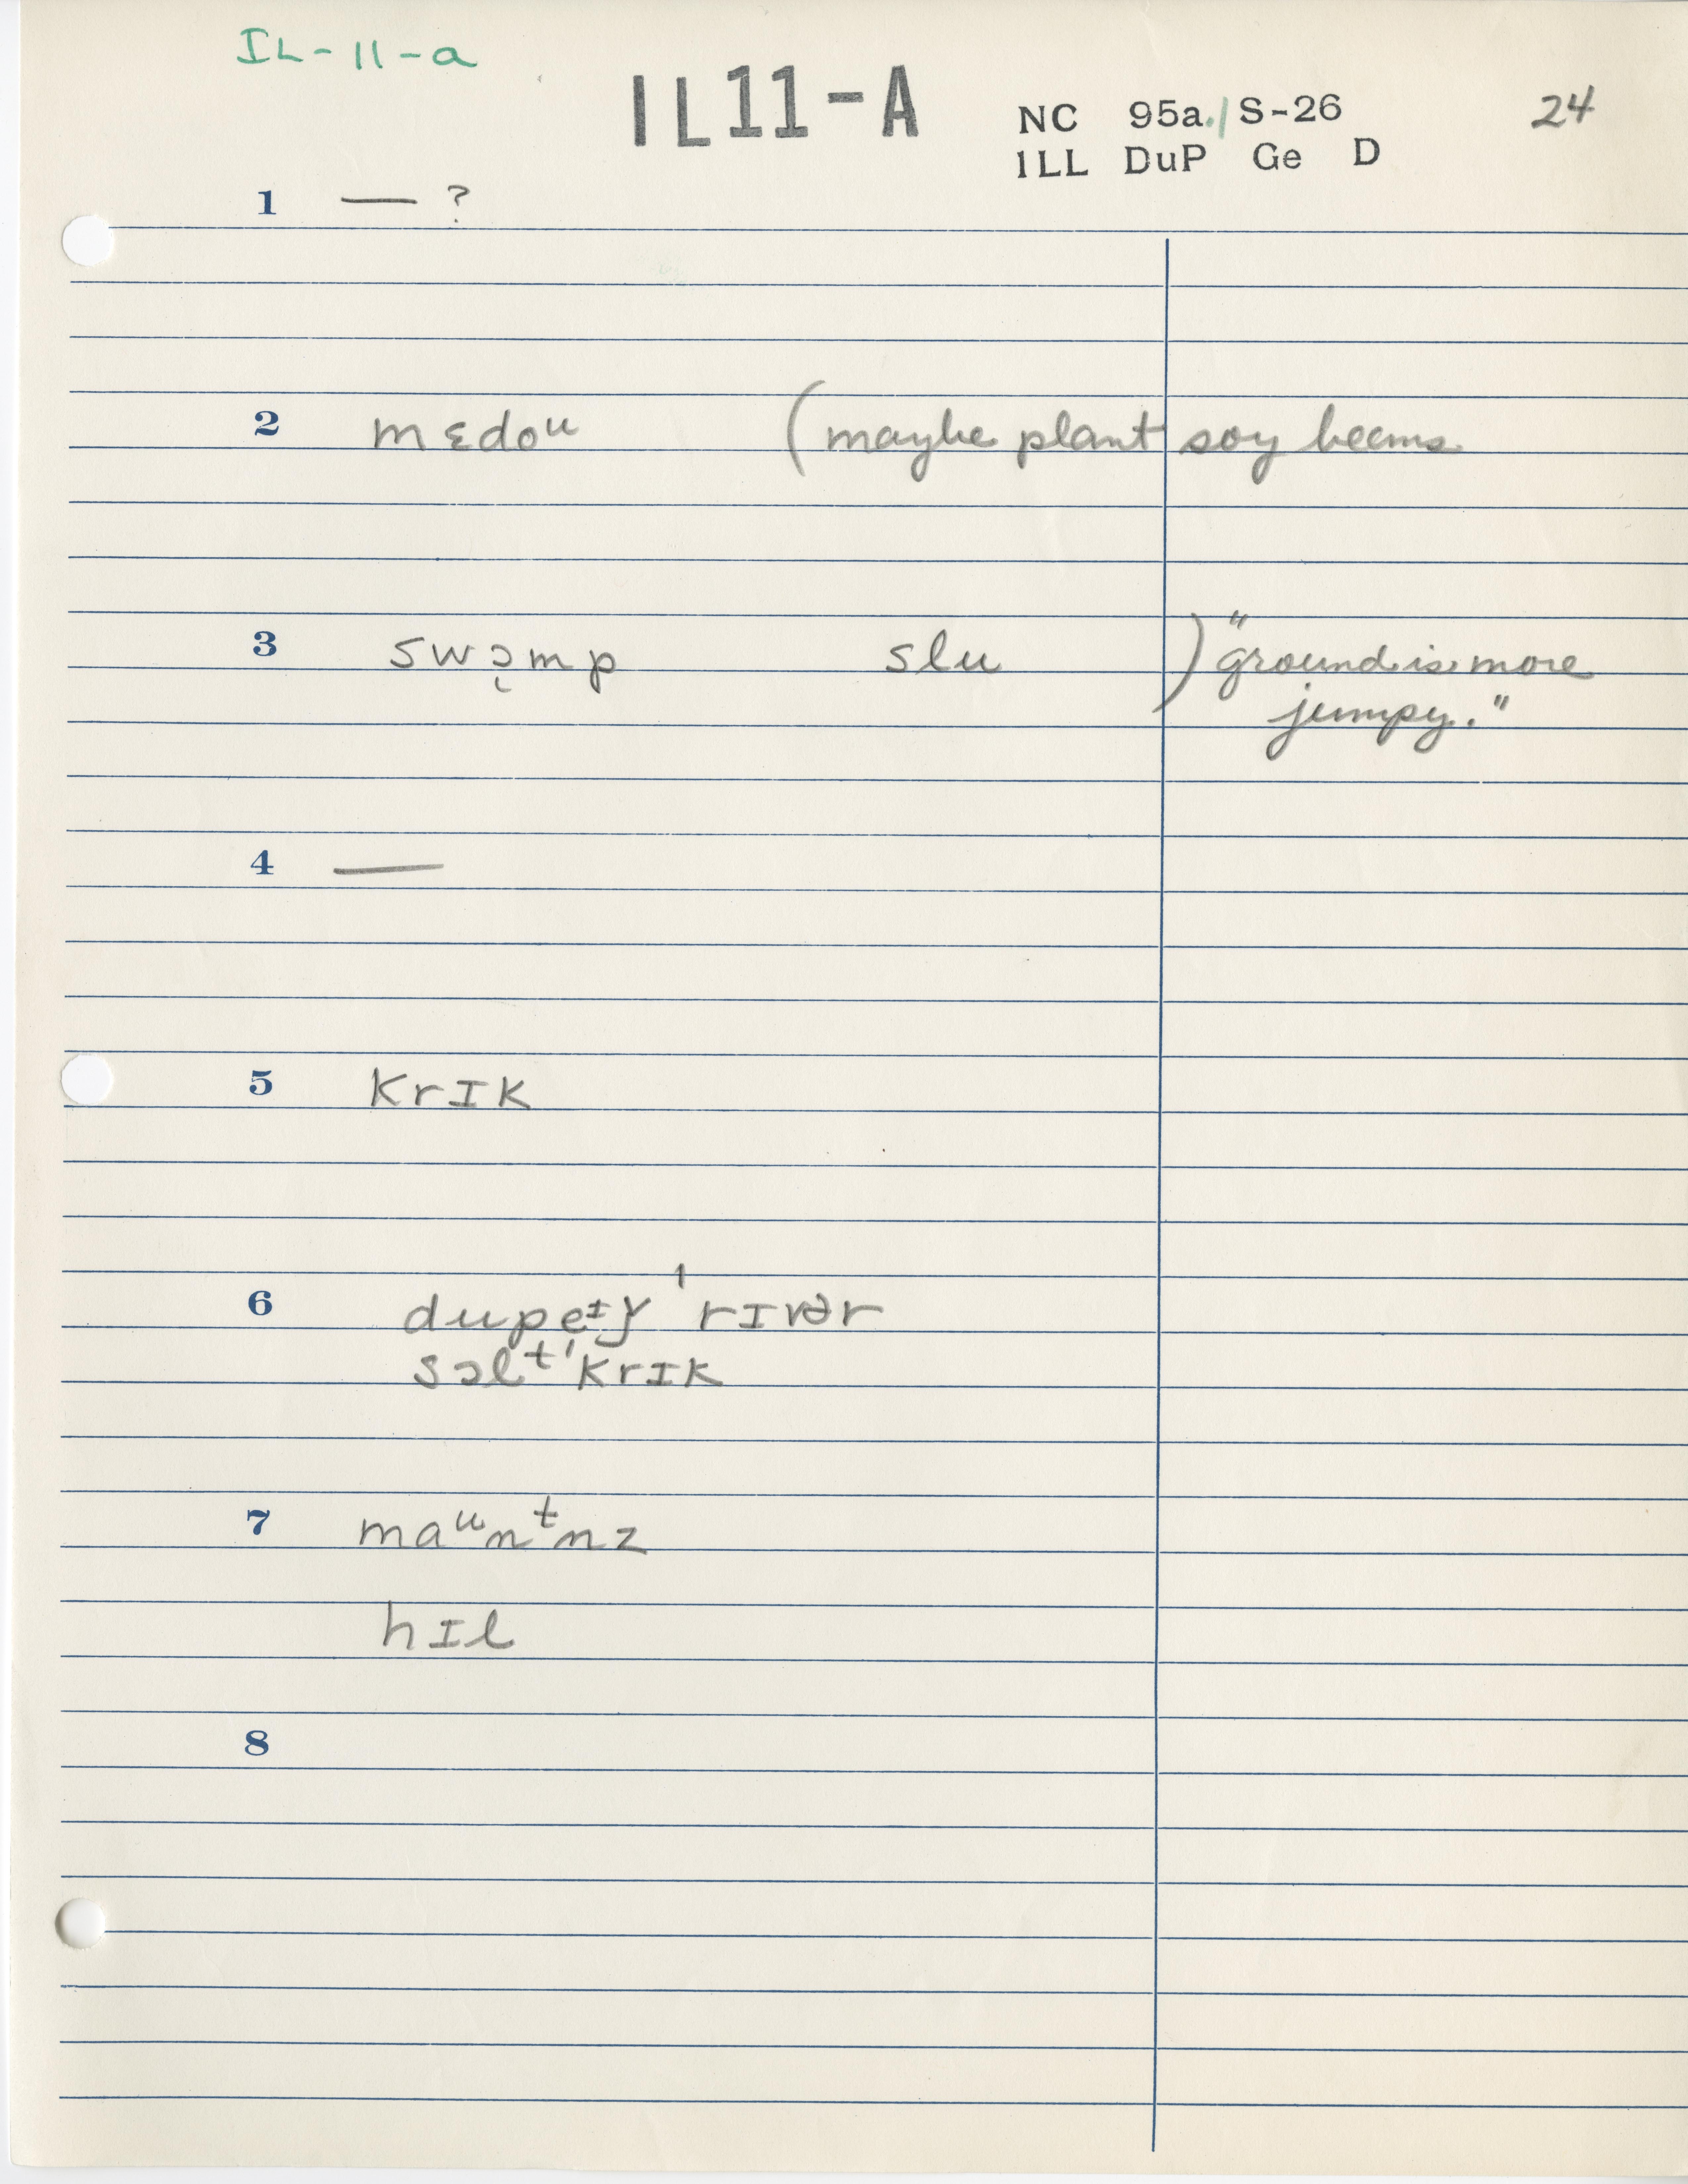 IL-11-a
IL11-A
NC 95a./S-26
24
ILL DuP Ge D
1 — ?
2 mɛdoᵘ (maybe plant soy beans
3 swɔ̨mp slu )"ground is more
jumpy."
4 —
5 krɪk
6 dupeᶦʤ ˈrɪvər
sɔlᵗˈkrɪk
7 maᵘnᵗnz
hɪl
8